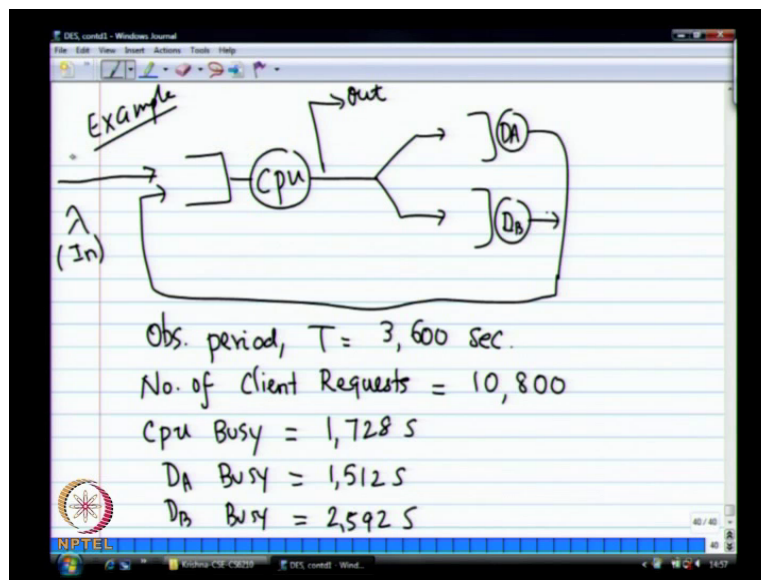 DES, contd1 - Windows Journal
File Edit View Insert Actions Tools Help
Example
out
Cpu
DA
DB
λ
(In)
Obs. period, T = 3,600 sec.
No. of Client Requests = 10,800
Cpu Busy = 1,728 S
DA Busy = 1,512 S
DB Busy = 2,592 S
NPTEL
40 / 40
40
Krishna-CSE-CS6210
DES, contd1 - Wind...
14:57